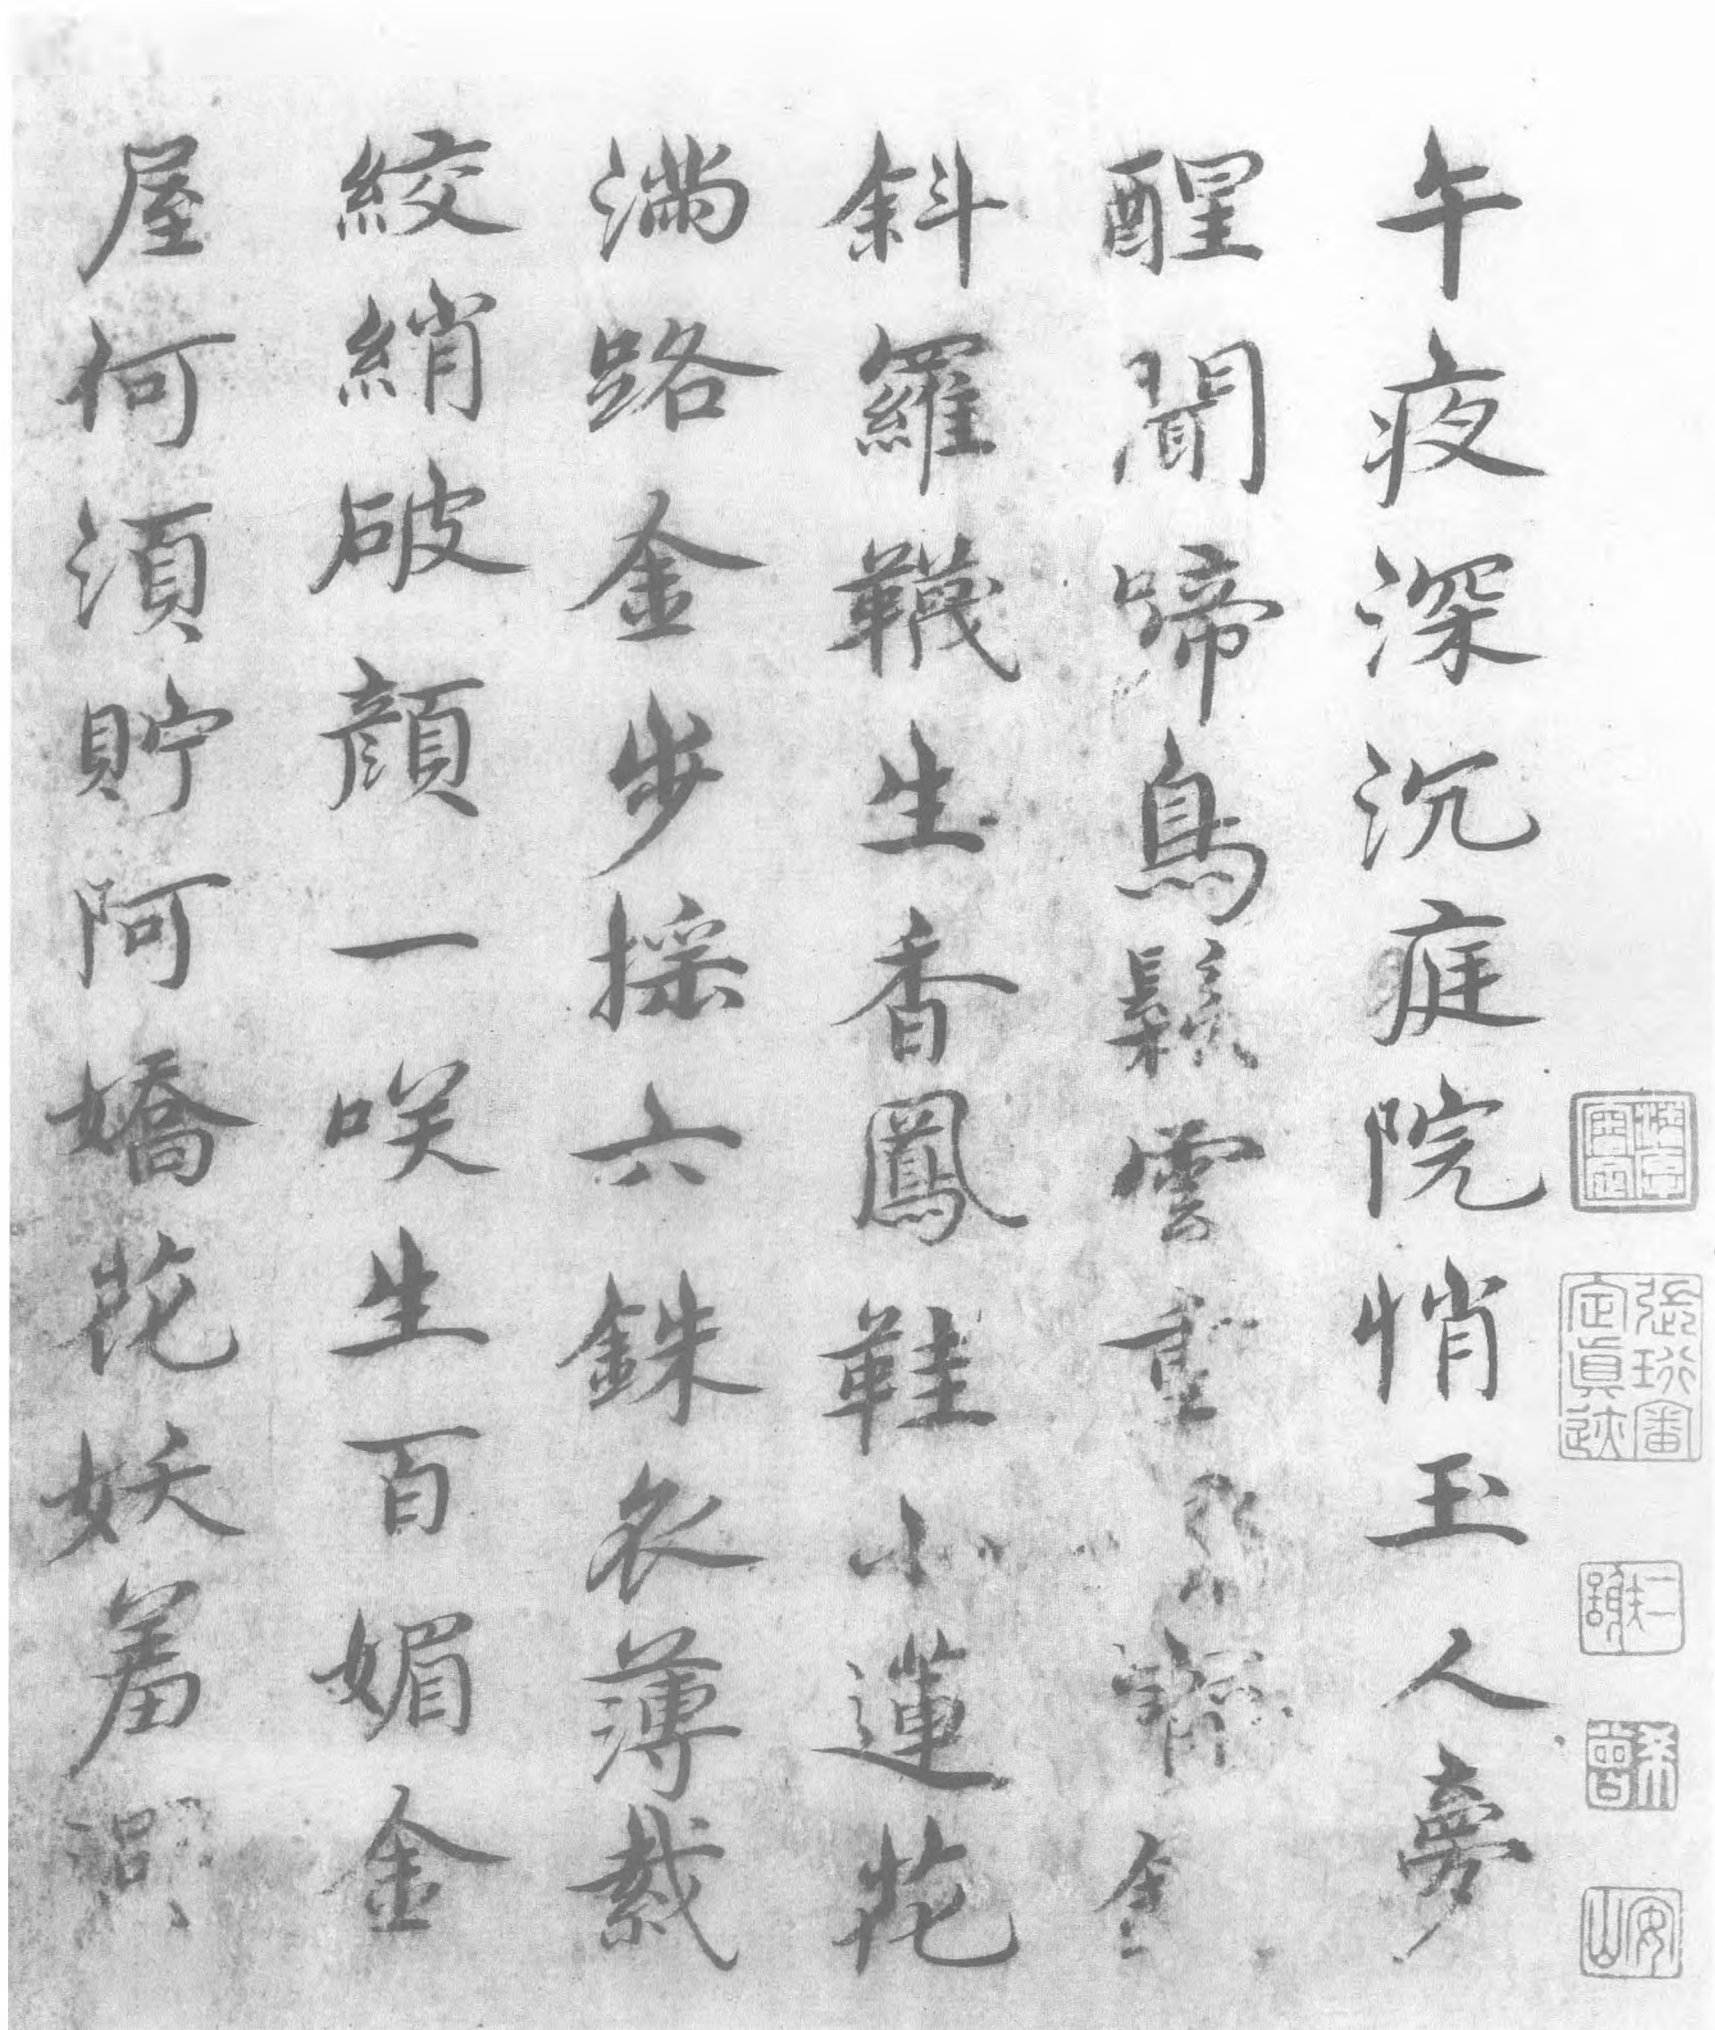 午夜深沉庭院悄玉人夢
醒聞啼鳥鬆雲重
斜羅襪生香鳳鞋小蓮花
滿路金步搖六銖衣薄裁
絞綃破顏一笑生百媚金
屋何須貯阿嬌花妖羞
張珩審定真迹
安